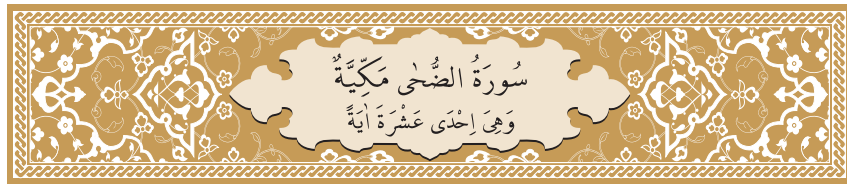 سُورَةُ الضُّحٰى مَكِّيَّةٌ
وَهِىَ اِحْدٰى عَشْرَةَ اٰيَةً